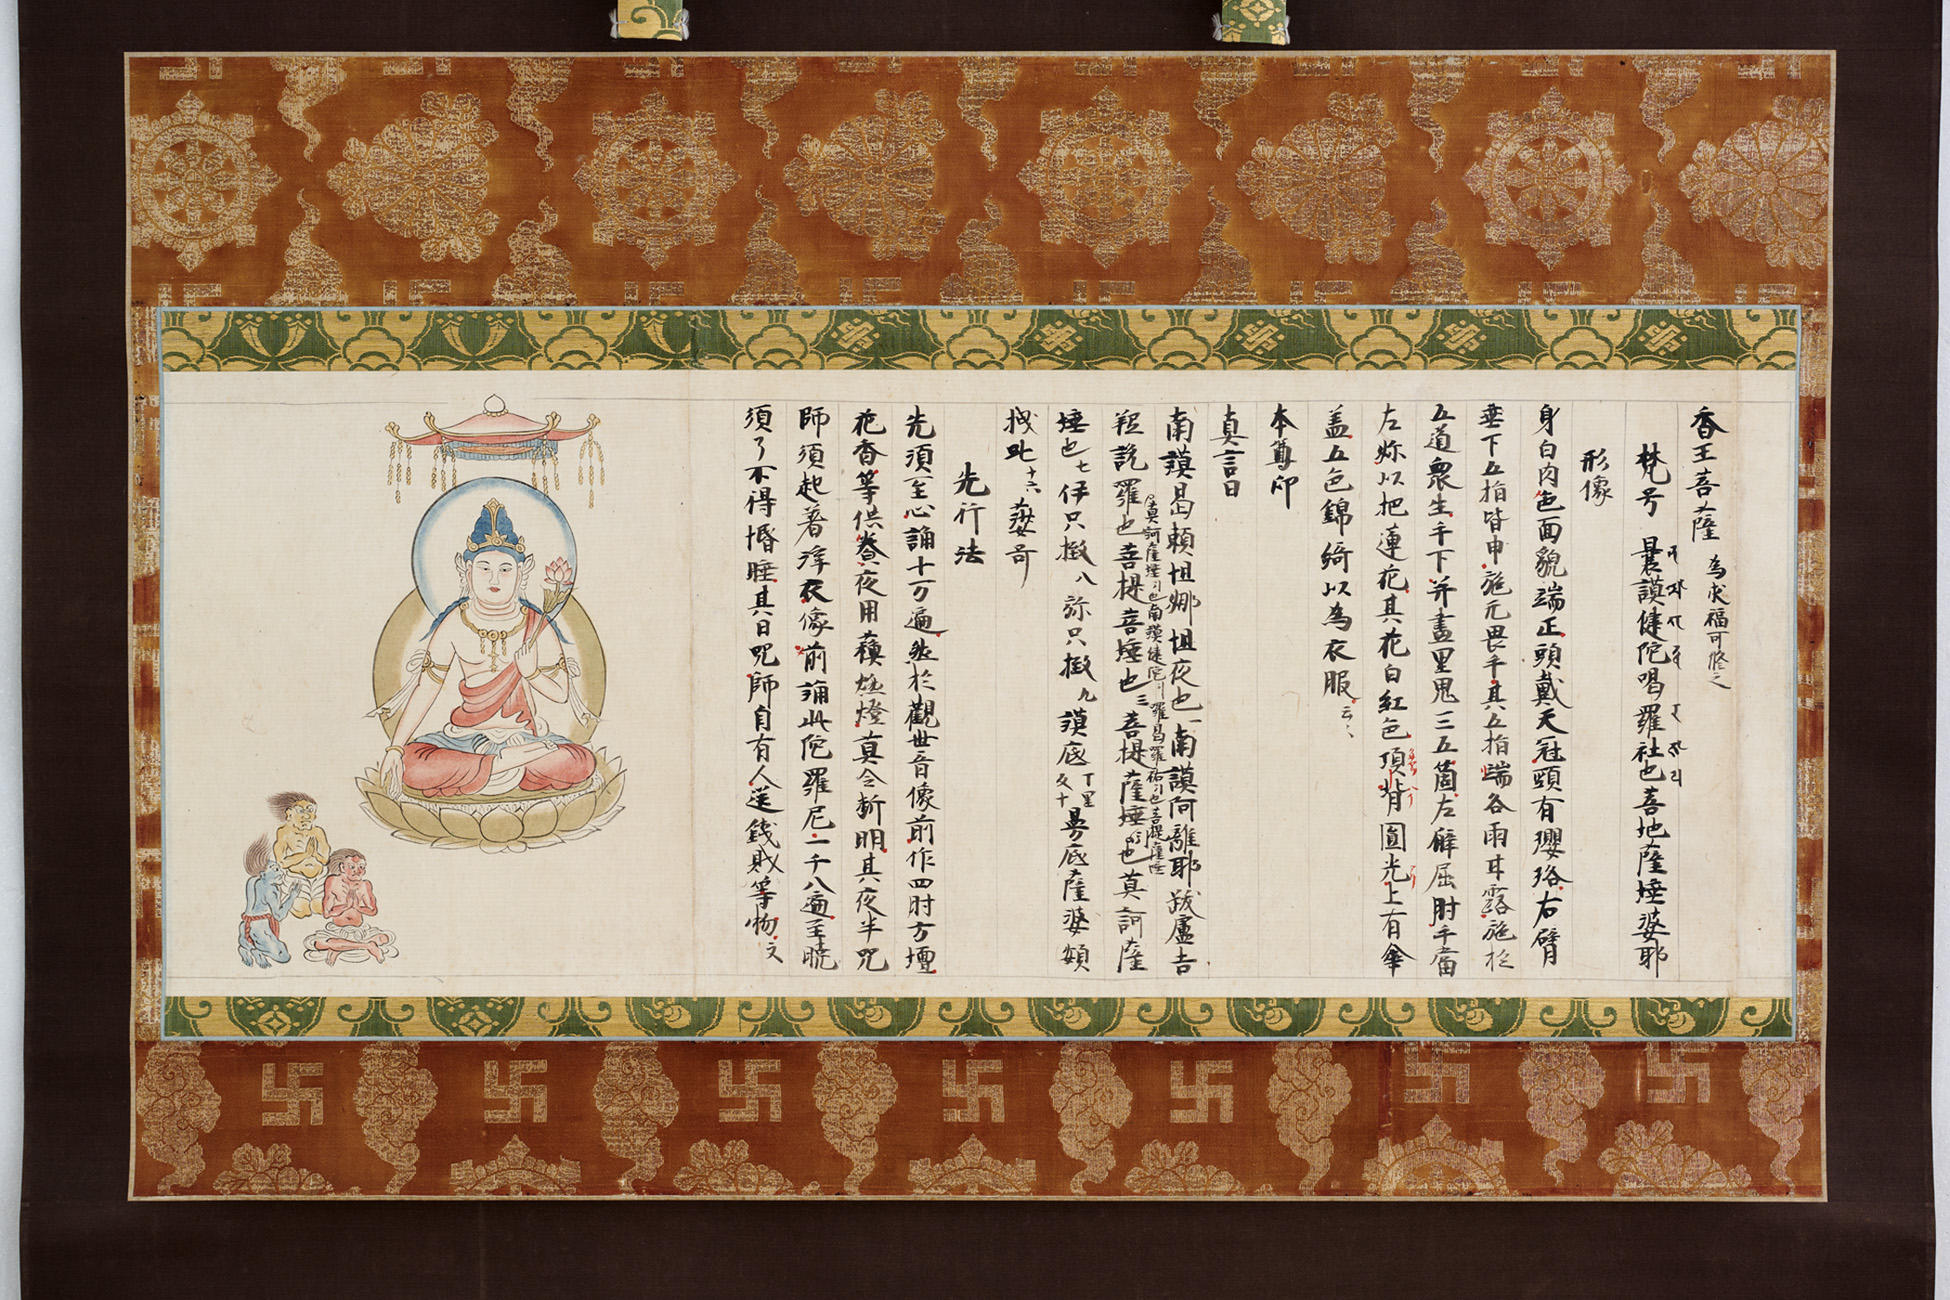 香王菩薩 為求福可修之
梵号 曩謨健陀喝羅社也菩地薩埵婆耶
形像
身白肉色面貌端正頭戴天冠頸有瓔珞右臂
垂下五指皆申施无畏手其五指端各雨甘露施於
五道衆生手下并畫黒鬼三五箇左臂屈肘手當
左妳以把蓮花其花白紅色頂背圓光上有傘
盖五色錦綺以為衣服云々
本尊印
真言曰
南謨曷頼怛娜怛夜也一南謨阿離耶跋盧吉
羅也菩提菩埵也三菩提薩埵也莫訶薩
埵也七伊只㨖八弥只㨖九謨底曼底薩婆
先行法
先須至心誦十万遍然於觀世音像前作四肘方壇
花香等供養夜用蘓燃燈莫令断明其夜半咒
師須起著浄衣像前誦此陀羅尼一千八遍至暁
須了不得惛睡其日咒師自有人送錢財等物文